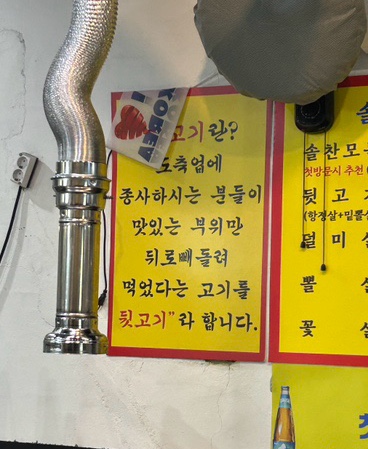 고기란?
도축업에
종사하시는 분들이
맛있는 부위만
뒤로빼돌려
먹었다는 고기를
뒷고기"라 합니다.
솔
솔찬모
첫방문시 추천
뒷고
(항정살+밑뽈살
덜미
뽈
꽃